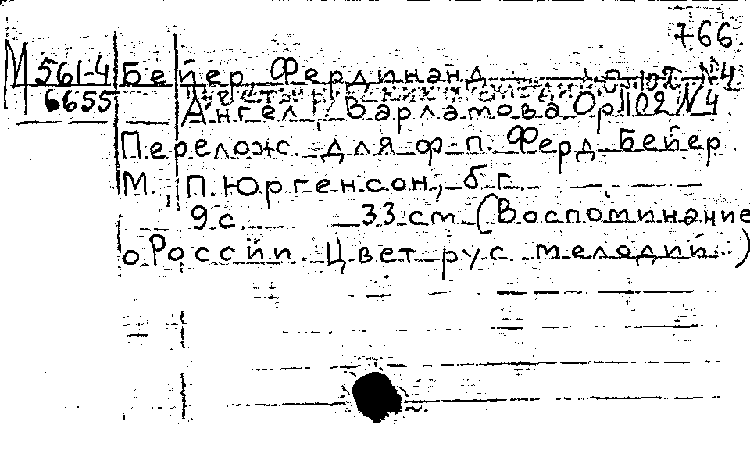 766
М 561-4 Бейер, Фердинанд 102 №4
6655 Ангел / Варламова Ор 102 №4
Перелож. для ф-п. Ферд. Бейер
М., П. Юргенсон, б.г.
9 с. 33 см (Воспоминание
о России. Цвет. рус. мелодий.)